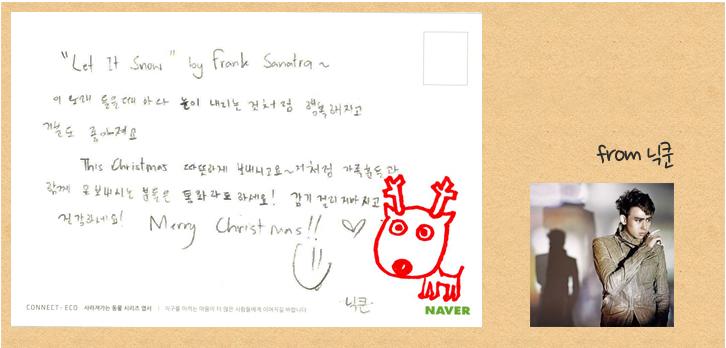 "Let It Snow" by Frank Sanatra~
이 노래 들을때 마다 눈이 내리는 것처럼 행복해지고
기분도 좋아져요
This Christmas 따뜻하게 보내시고요~저처럼 가족분들과
함께 못보내시는 분들은 통화라도 하세요! 감기 걸리지마시고
건강하세요! Merry Christmas!!
-닉쿤-
NAVER
CONNECT-ECO 사라져가는 동물 시리즈 엽서 | 지구를 아끼는 마음이 더 많은 사람들에게 이어지길 바랍니다
from 닉쿤